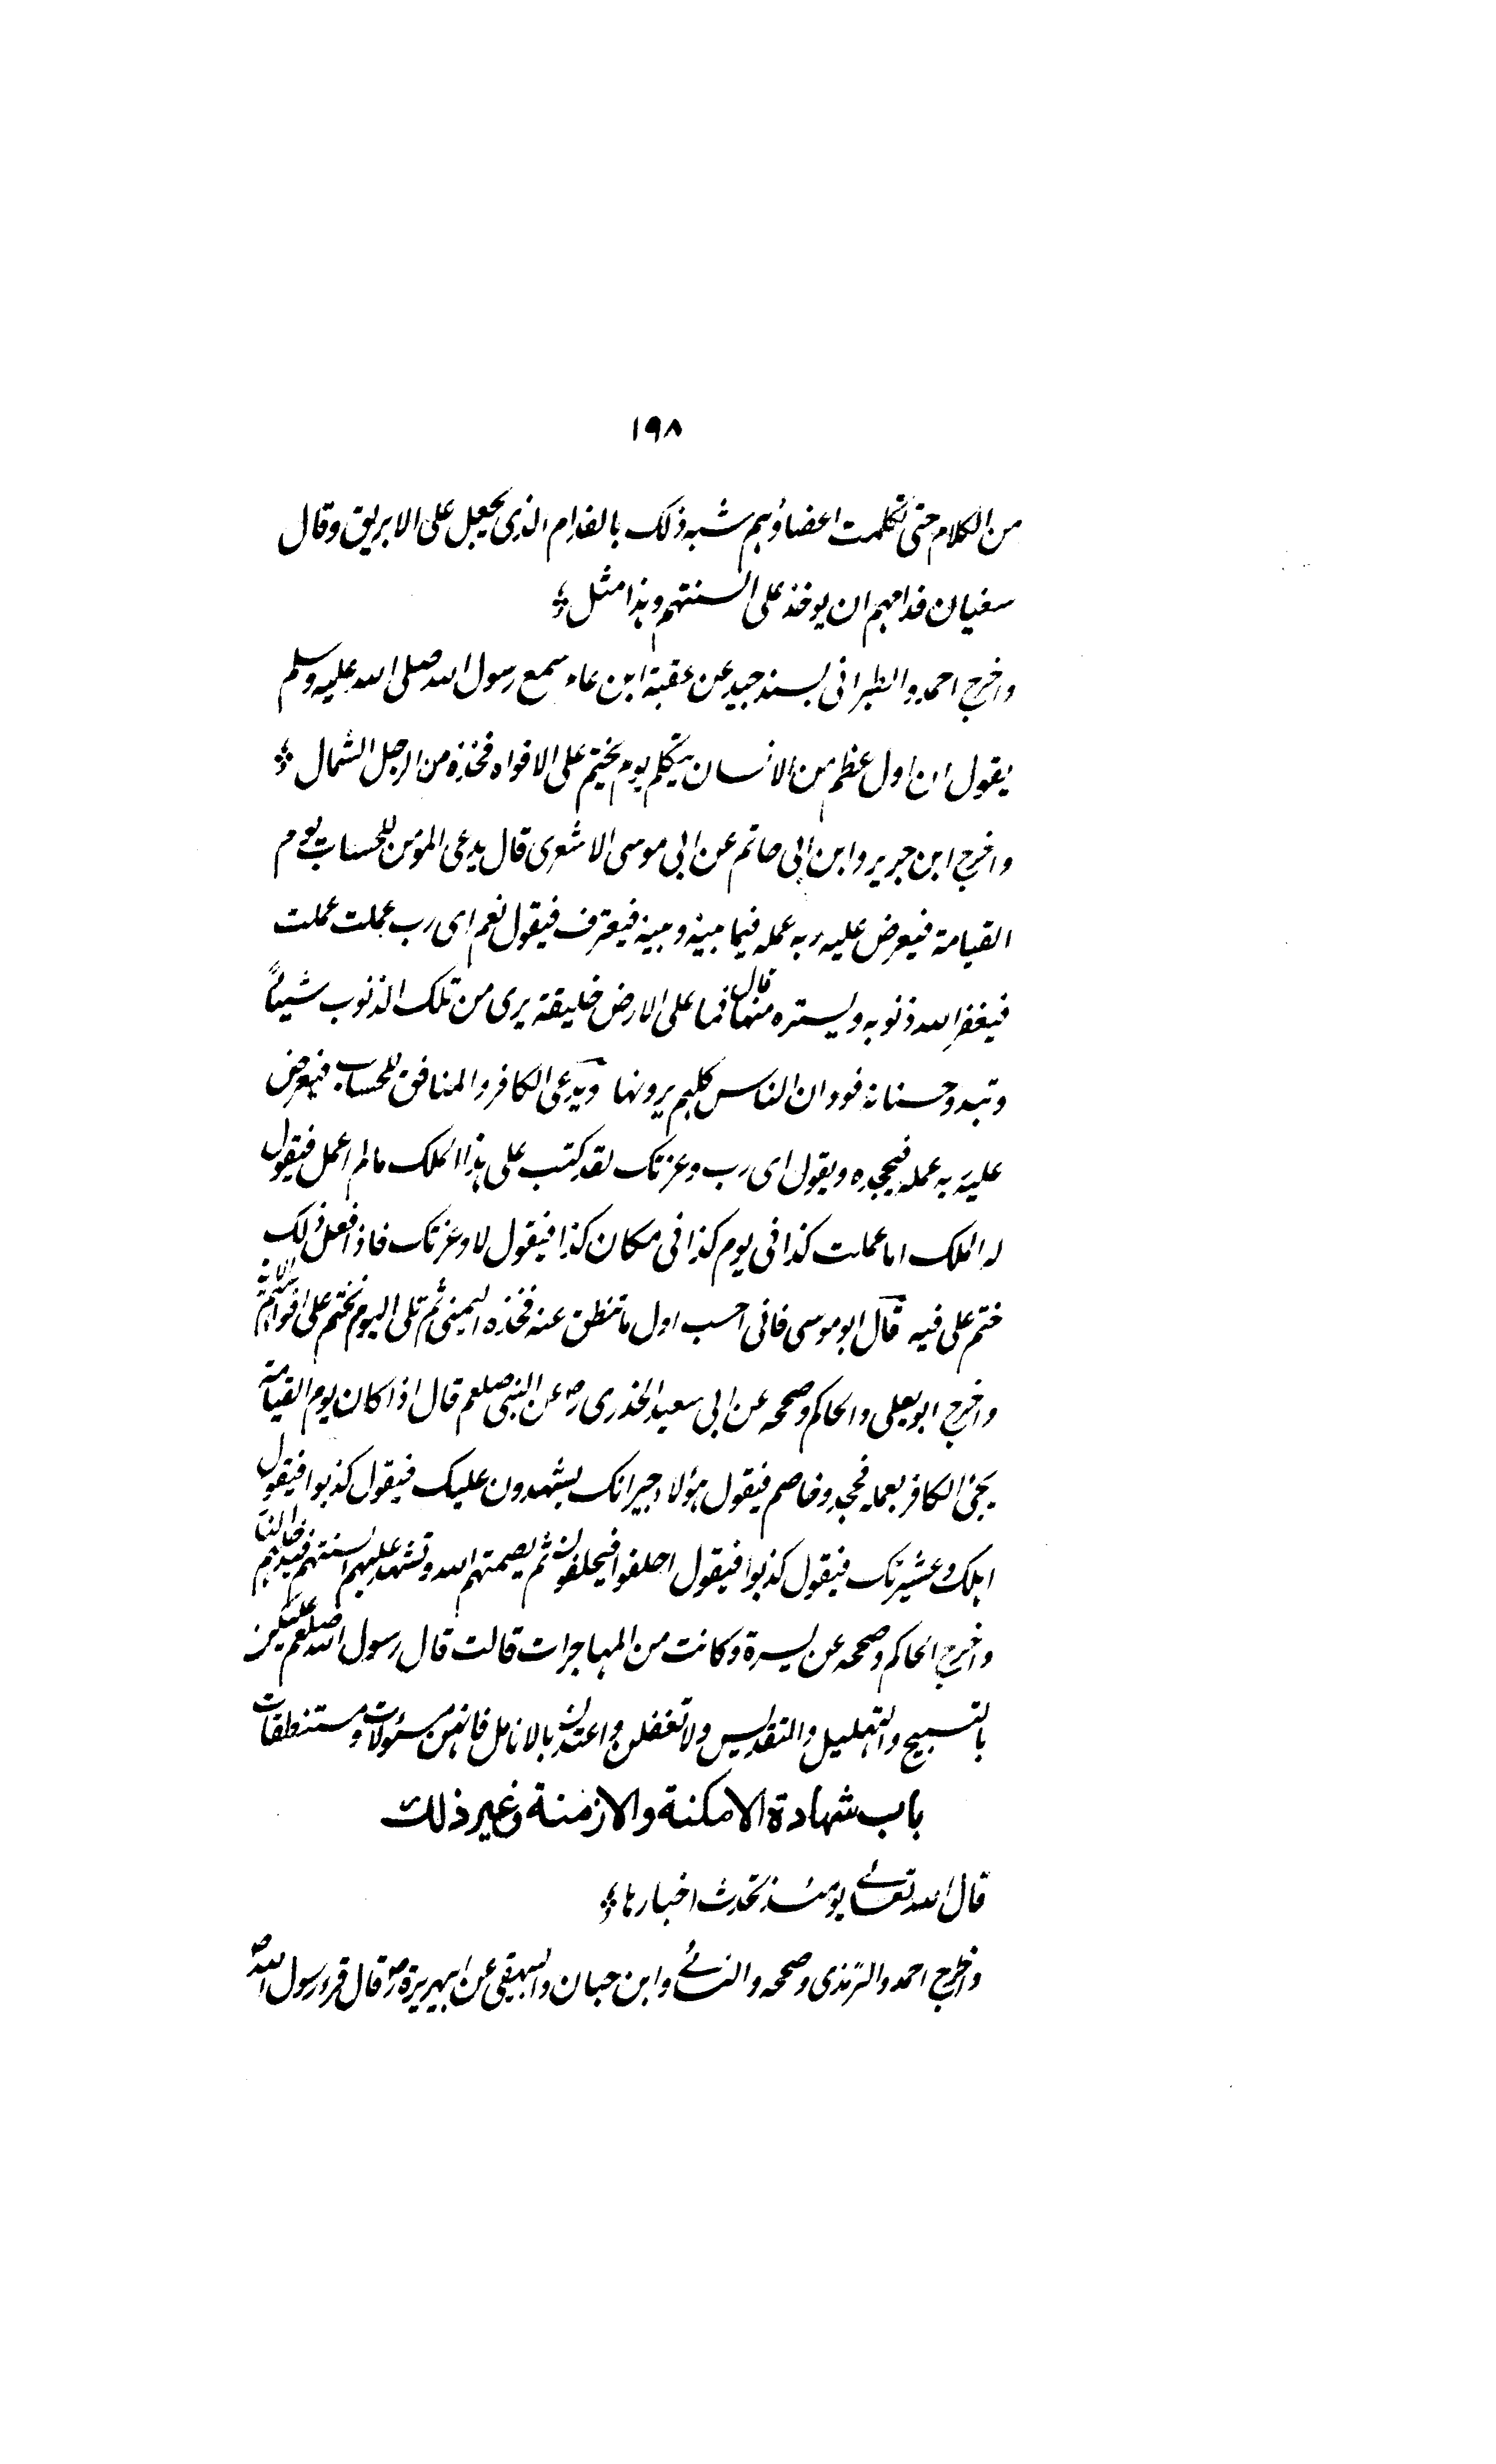 ١٩٨
من الكلام حتى تكلمت اعضاؤهم شبه ذلك بالفدام الذى يجعل على الابريق وقال
سفيان فدامهم ان يوخذ على السنتهم وهذا مثل
واخرج احمد والطبرانى بسند جيد عن عقبة ابن عامر سمع رسول الله صلى الله عليه وسلم
يقول ان اول عظم من الانسان يتكلم يوم يختم على الافواه فخذه من الرجل الشمال
واخرج ابن جرير وابن ابى حاتم عن ابى موسى الاشعرى قال يدعى المؤمن للحساب يوم
القيامة فيعرض عليه ربه عمله فيما بينه وبينه فيعترف فيقول نعم اى رب عملت عملت
فيغفر الله ذنوبه ويستره منها قال فما على الارض خليقة يرى من تلك الذنوب شيئاً
وتبدو حسناته فود ان الناس كلهم يرونها ويدعى الكافر والمنافق للحساب فيعرض
عليه ربه عمله فيجحده ويقول اى رب وعزتك لقد كتب على هذا الملك مالم اعمل فيقول
له الملك اما عملت كذا فى يوم كذا فى مكان كذا فيقول لا وعزتك فاذا فعل ذلك
ختم على فيه قال ابو موسى فانى احسب اول ما تنطق عنه فخذه اليمنى ثم تلى اليوم نختم على افواههم الاية
واخرج ابو يعلى والحاكم وصححه عن ابى سعيد الخدرى رض عن النبى صلعم قال اذا كان يوم القيامة
يجئ الكافر بعمله فجحد وخاصم فيقول هؤلاء جيرانك يشهدون عليك فيقول كذبوا فيقول
اهلك وعشيرتك فيقول كذبوا فيقول احلفوا فيحلفون ثم يصمتهم الله وتشهد عليهم السنتهم فيدخلهم النار
واخرج الحاكم وصححه عن يسرة وكانت من المهاجرات قالت قال رسول الله صلعم عليكن
بالتسبيح والتهليل والتقديس ولا تغفلن واعتدن بالانامل فانهن مسئولات ومستنطقات
باب شهادة الامكنة والازمنة وغير ذلك
قال الله تعالے يومئذ تحدث اخبارها
واخرج احمد والترمذى وصححه والنسائے وابن حبان والبيهقى عن ابيهريرة رض قال قرء رسول الله ص